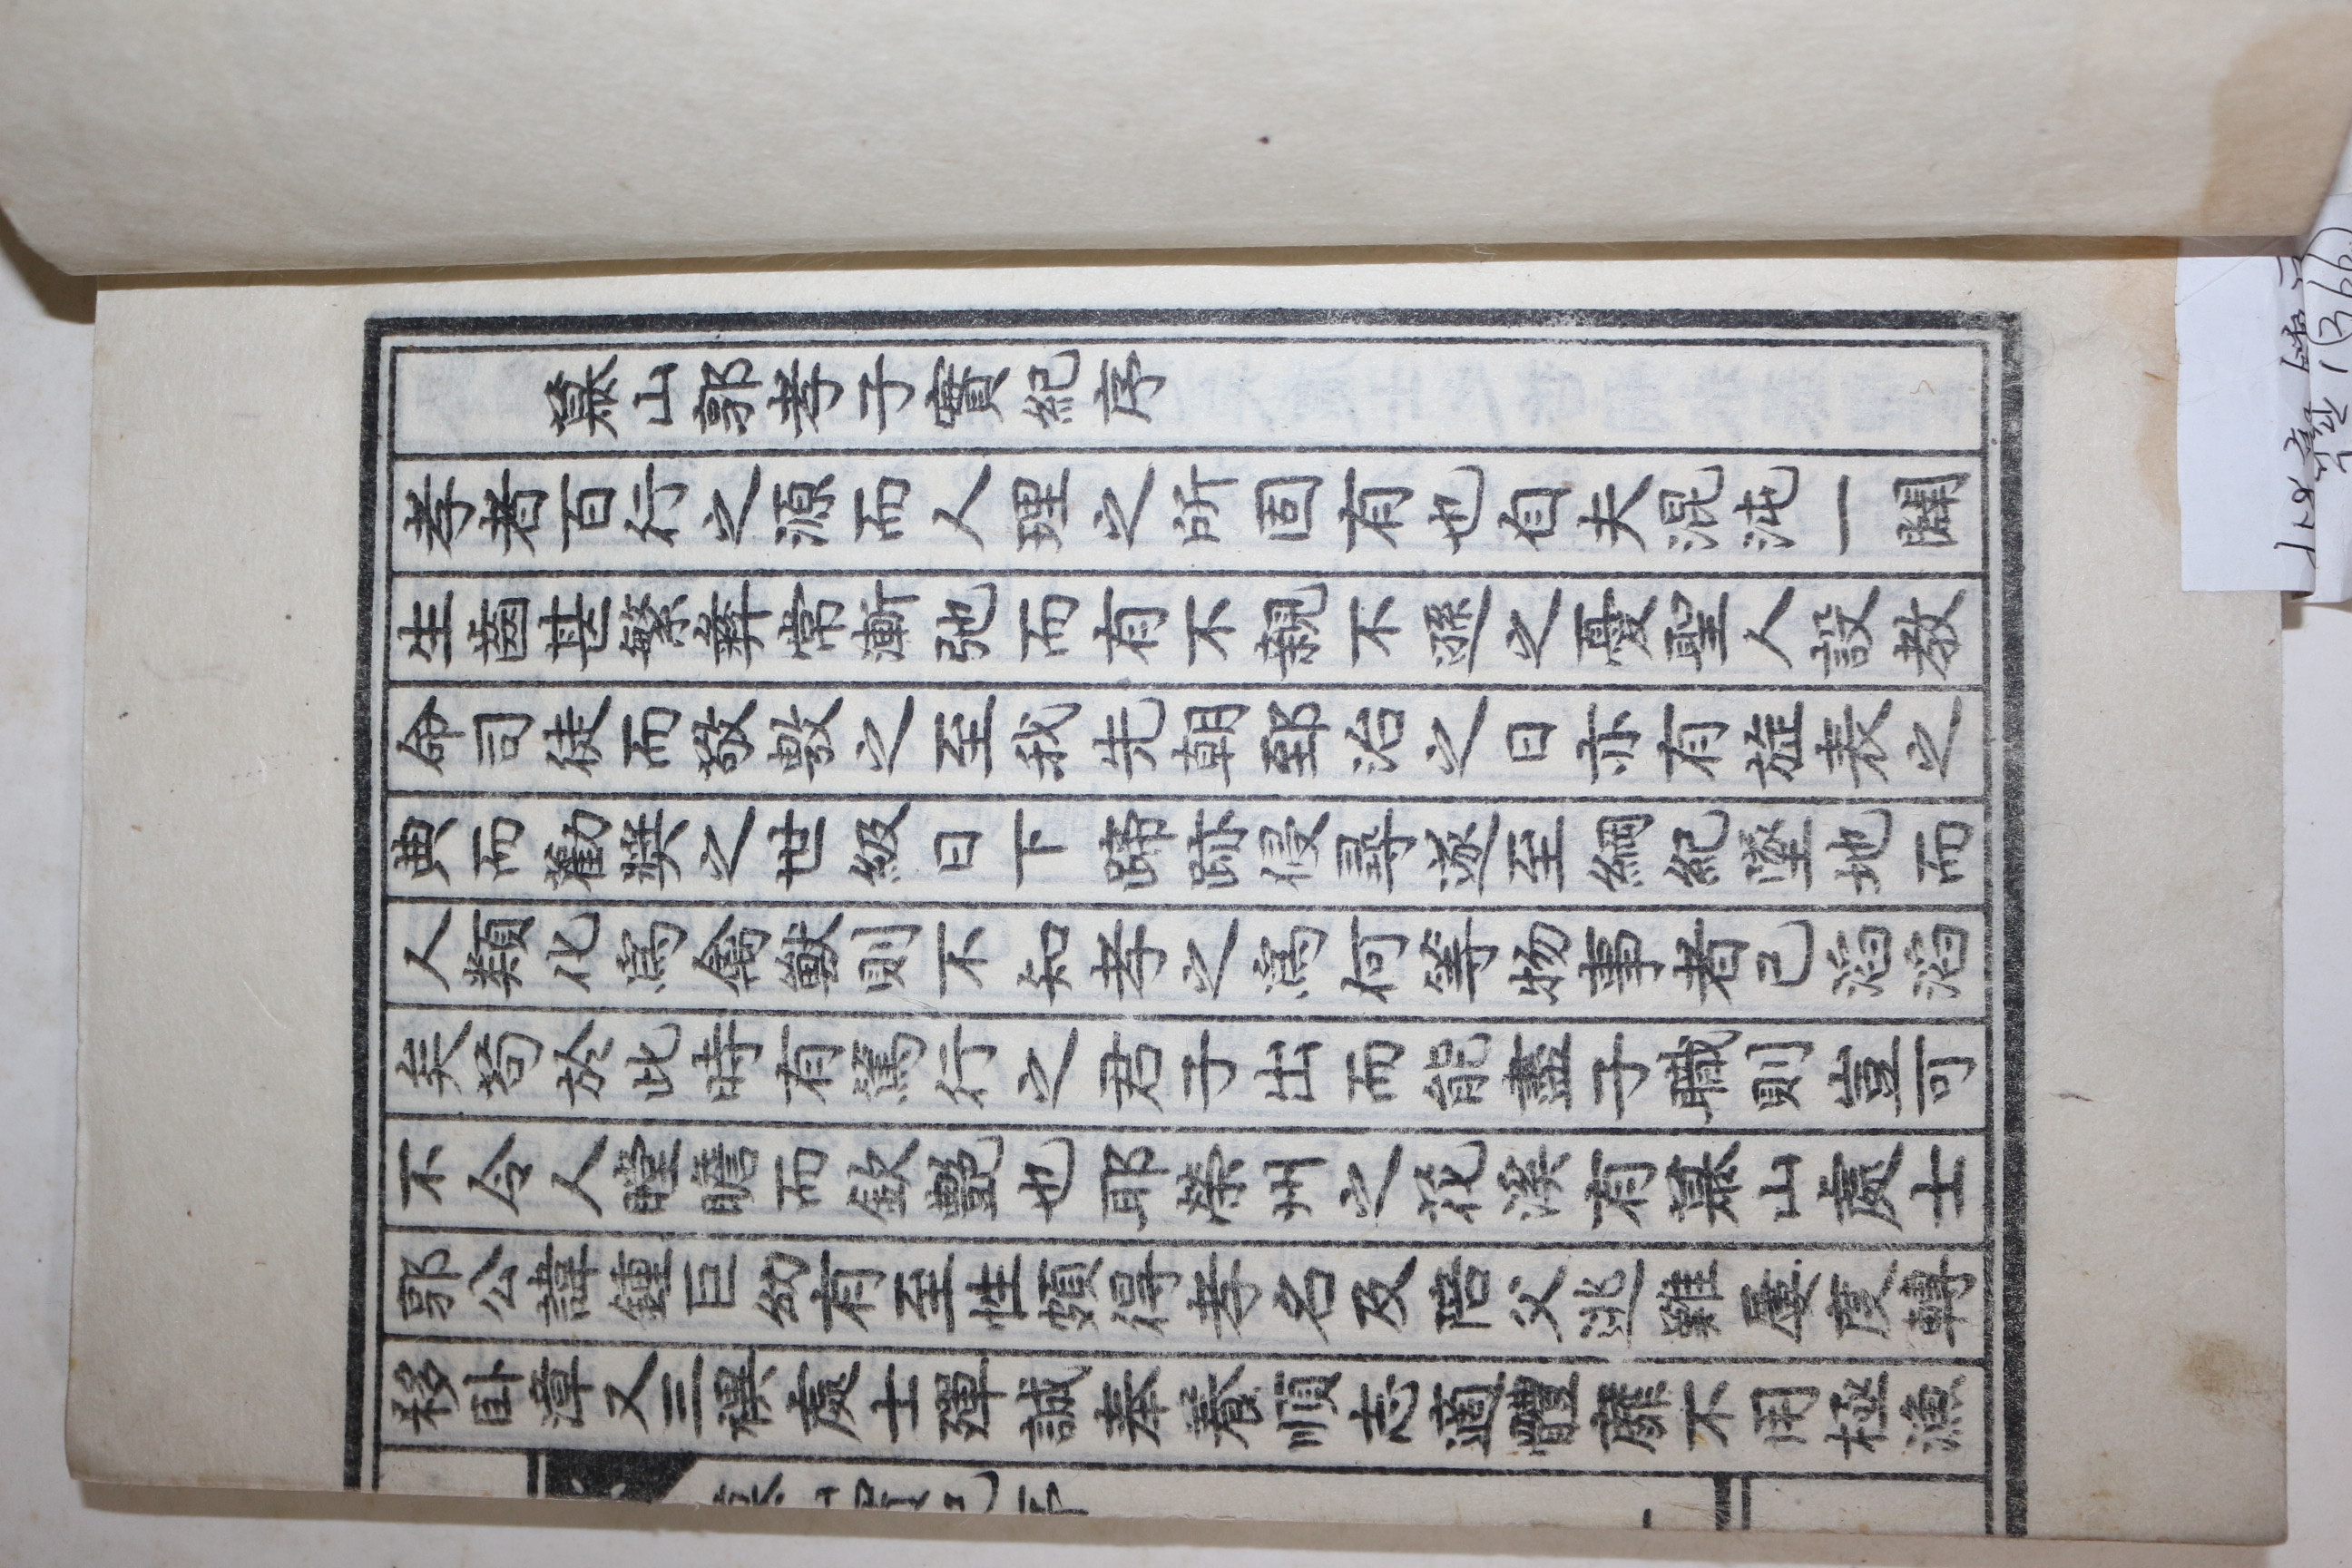 慕山郭孝子實紀序
孝者百行之源而人理之所固有也自夫混沌一闢
生齒甚繁彝常漸弛而有不親不遜之憂聖人設教
命司徒而敬敷之至我先朝郅治之日亦有旌表之
典而勸奬之世級日下蹄跡侵尋遂至綱紀墜地而
人類化爲禽獸則不知孝之爲何等物事者已滔滔
矣苟於此時有篤行之君子出而能盡子職則豈可
不令人瞠瞻而欽艶也耶榮州之花溪有慕山處士
郭公諱鍾巨幼有至性頗得孝名及陪父逃難屢度轉
移卧漳又三禩處士殫誠奉養順志適體靡不用極漁
慕山實紀序
一
(366)